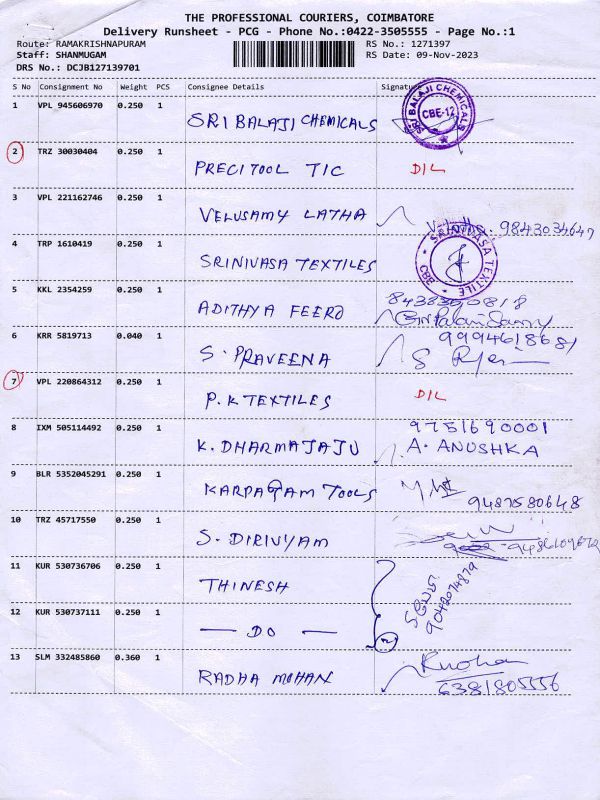 THE PROFESSIONAL COURIERS, COIMBATORE
Delivery Runsheet - PCG - Phone No.:0422-3505555 - Page No.:1
Route: RAMAKRISHNAPURAM RS No.: 1271397
Staff: SHANMUGAM RS Date: 09-Nov-2023
DRS No.: DCJB127139701
S No Consignment No Weight PCS Consignee Details Signature
1 VPL 945606970 0.250 1 SRI BALAJI CHEMICALS SRI BALAJI CHEMICALS CBE-12
2 TRZ 30030404 0.250 1 PRECITOOL TIC D/L
3 VPL 221162746 0.250 1 VELUSAMY LATHA 9843034647
4 TRP 1610419 0.250 1 SRINIVASA TEXTILES SRINIVASA TEXTILE CBE
5 KKL 2354259 0.250 1 ADITHYA FEERO
6 KRR 5819713 0.040 1 S. PRAVEENA 9994618681
7 VPL 220864312 0.250 1 P.K TEXTILES D/L
8 IXM 505114492 0.250 1 K. DHARMAJAJU 9751690001
A. ANUSHKA
9 BLR 5352045291 0.250 1 KARPAGAM TOOLS 9487580648
10 TRZ 45717550 0.250 1 S. DIRIVYAM
11 KUR 530736706 0.250 1 THINESH 9042074879
12 KUR 530737111 0.250 1 — DO — 2
13 SLM 332485860 0.360 1 RADHA MOHAN 6381805556